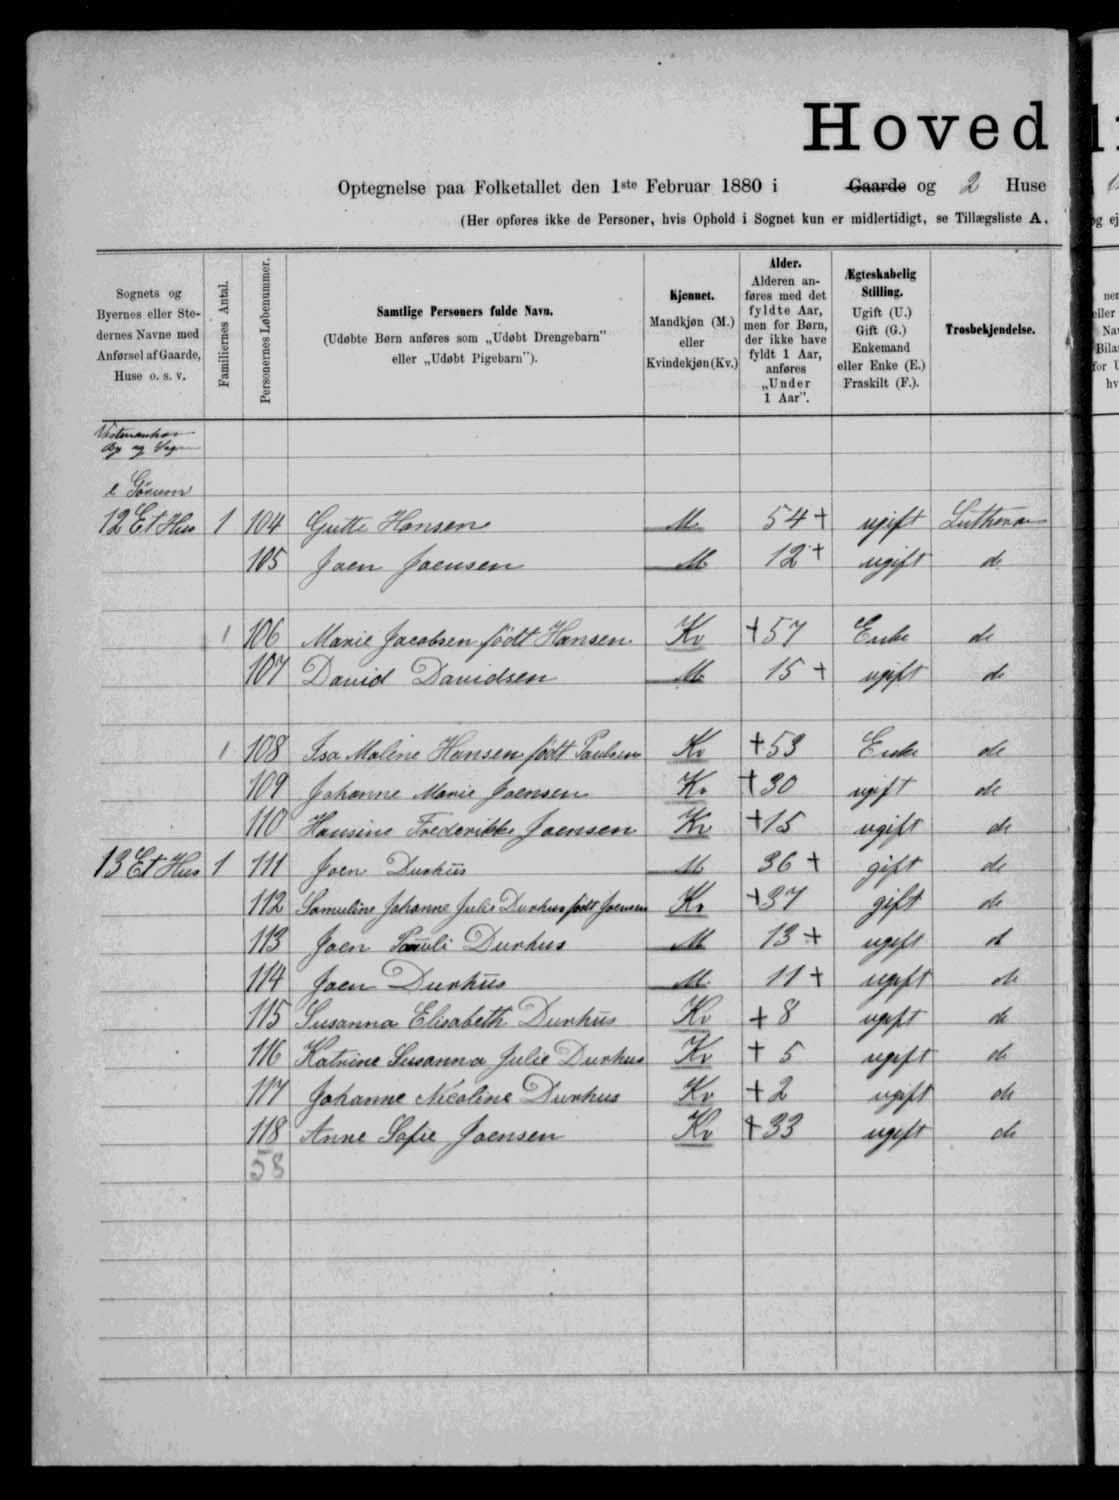 Hoved
Optegnelse paa Folketallet den 1ste Februar 1880 i Gaarde og 2 Huse
(Her opføres ikke de Personer, hvis Ophold i Sognet kun er midlertidigt, se Tillægsliste A.
Sognets og Byernes eller Stedernes Navne med Anførsel af Gaarde, Huse o. s. v.
Familiernes Antal.
Personernes Løbenummer.
Samtlige Personers fulde Navn.
(Udøbte Børn anføres som „Udøbt Drengebarn" eller „Udøbt Pigebarn").
Kjønnet.
Mandkjøn (M.) eller Kvindekjøn (Kv.)
Alder.
Alderen anføres med det fyldte Aar, men for Børn, der ikke have fyldt 1 Aar, anføres „Under 1 Aar".
Ægteskabelig Stilling.
Ugift (U.) Gift (G.) Enkemand eller Enke (E.) Fraskilt (F.).
Trosbekjendelse.
Vestmanhav
By og Sogn
i Görum
12 Et Hus 1 104 Gutte Hansen M 54 + ugift Lutheran
105 Joen Joensen M 12 + ugift do
1 106 Marie Jacobsen födt Hansen Kv + 57 Enke do
107 David Davidsen M 15 + ugift do
1 108 Isa Malene Hansen födt Paulsen Kv + 53 Enke do
109 Johanne Marie Joensen Kv + 30 ugift do
110 Hansine Frederikke Joensen Kv + 15 ugift do
13 Et Hus 1 111 Joen Durhüs M 36 + gift do
112 Samuline Johanne Julie Durhus födt Joensen Kv + 37 gift do
113 Joen Pauli Durhus M 13 + ugift do
114 Joen Durhüs M 11 + ugift do
115 Susanna Elisabeth Durhüs Kv + 8 ugift do
116 Katrine Susanna Julie Durhus Kv + 5 ugift do
117 Johanne Nicoline Durhus Kv + 2 ugift do
118 Anne Sofie Joensen Kv + 33 ugift do
58